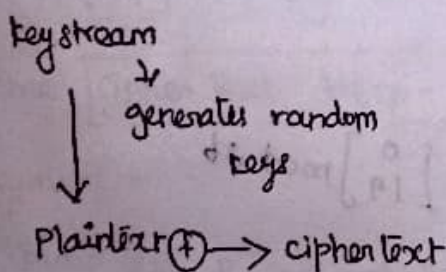 keystream
generates random
keys
Plaintext ⊕ → ciphertext